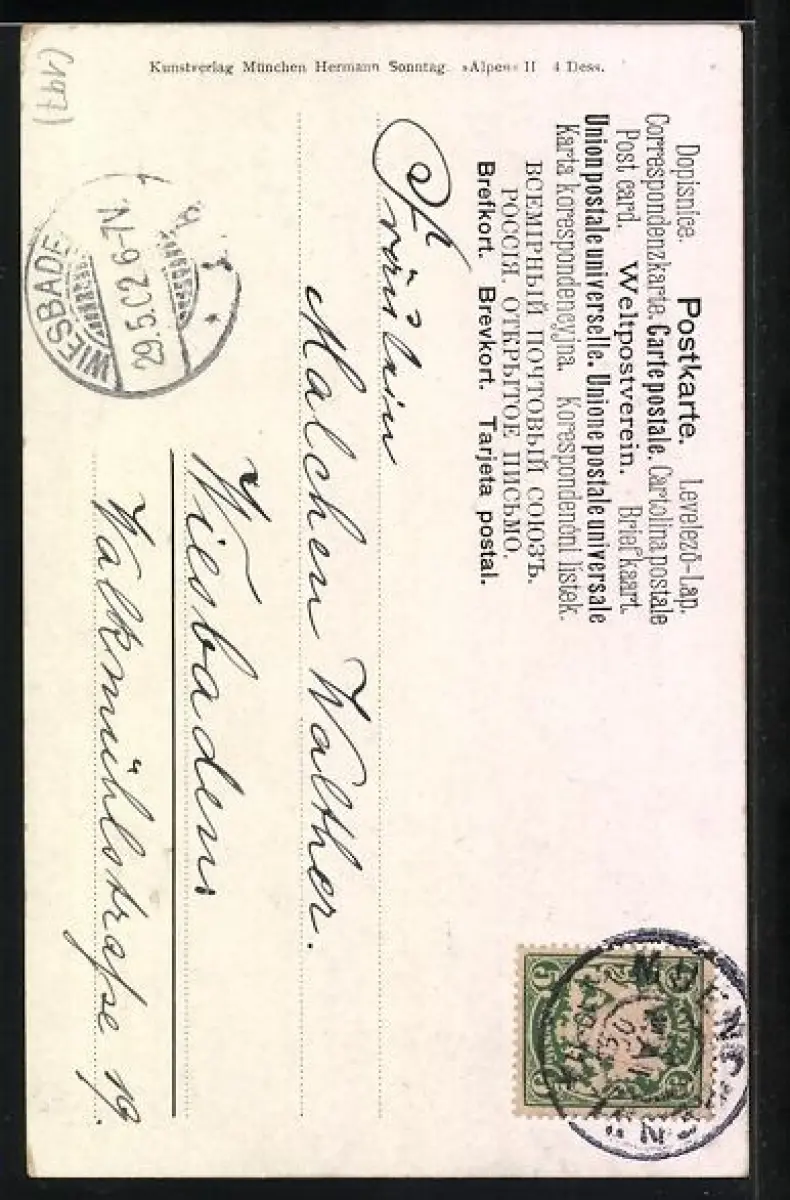 (197)
Kunstverlag München Hermann Sonntag. »Alpen« II 4 Dess.
Postkarte. Levelező-Lap.
Dopisnice.
Correspondenzkarte. Carte postale. Cartolina postale
Post card. Weltpostverein. Briefkaart
Union postale universelle. Unione postale universale
Karta korespondencyjna. Korespondenční lístek.
ВСЕМІРНЫЙ ПОЧТОВЫЙ СОЮЗЪ.
РОССІЯ. ОТКРЫТОЕ ПИСЬМО.
Brefkort. Brevkort. Tarjeta postal.
Fräulein
Malchen Walther.
Wiesbaden.
Walkmühlstraße 19.
WIESBADE
29.5.02 6-7N.
5
5